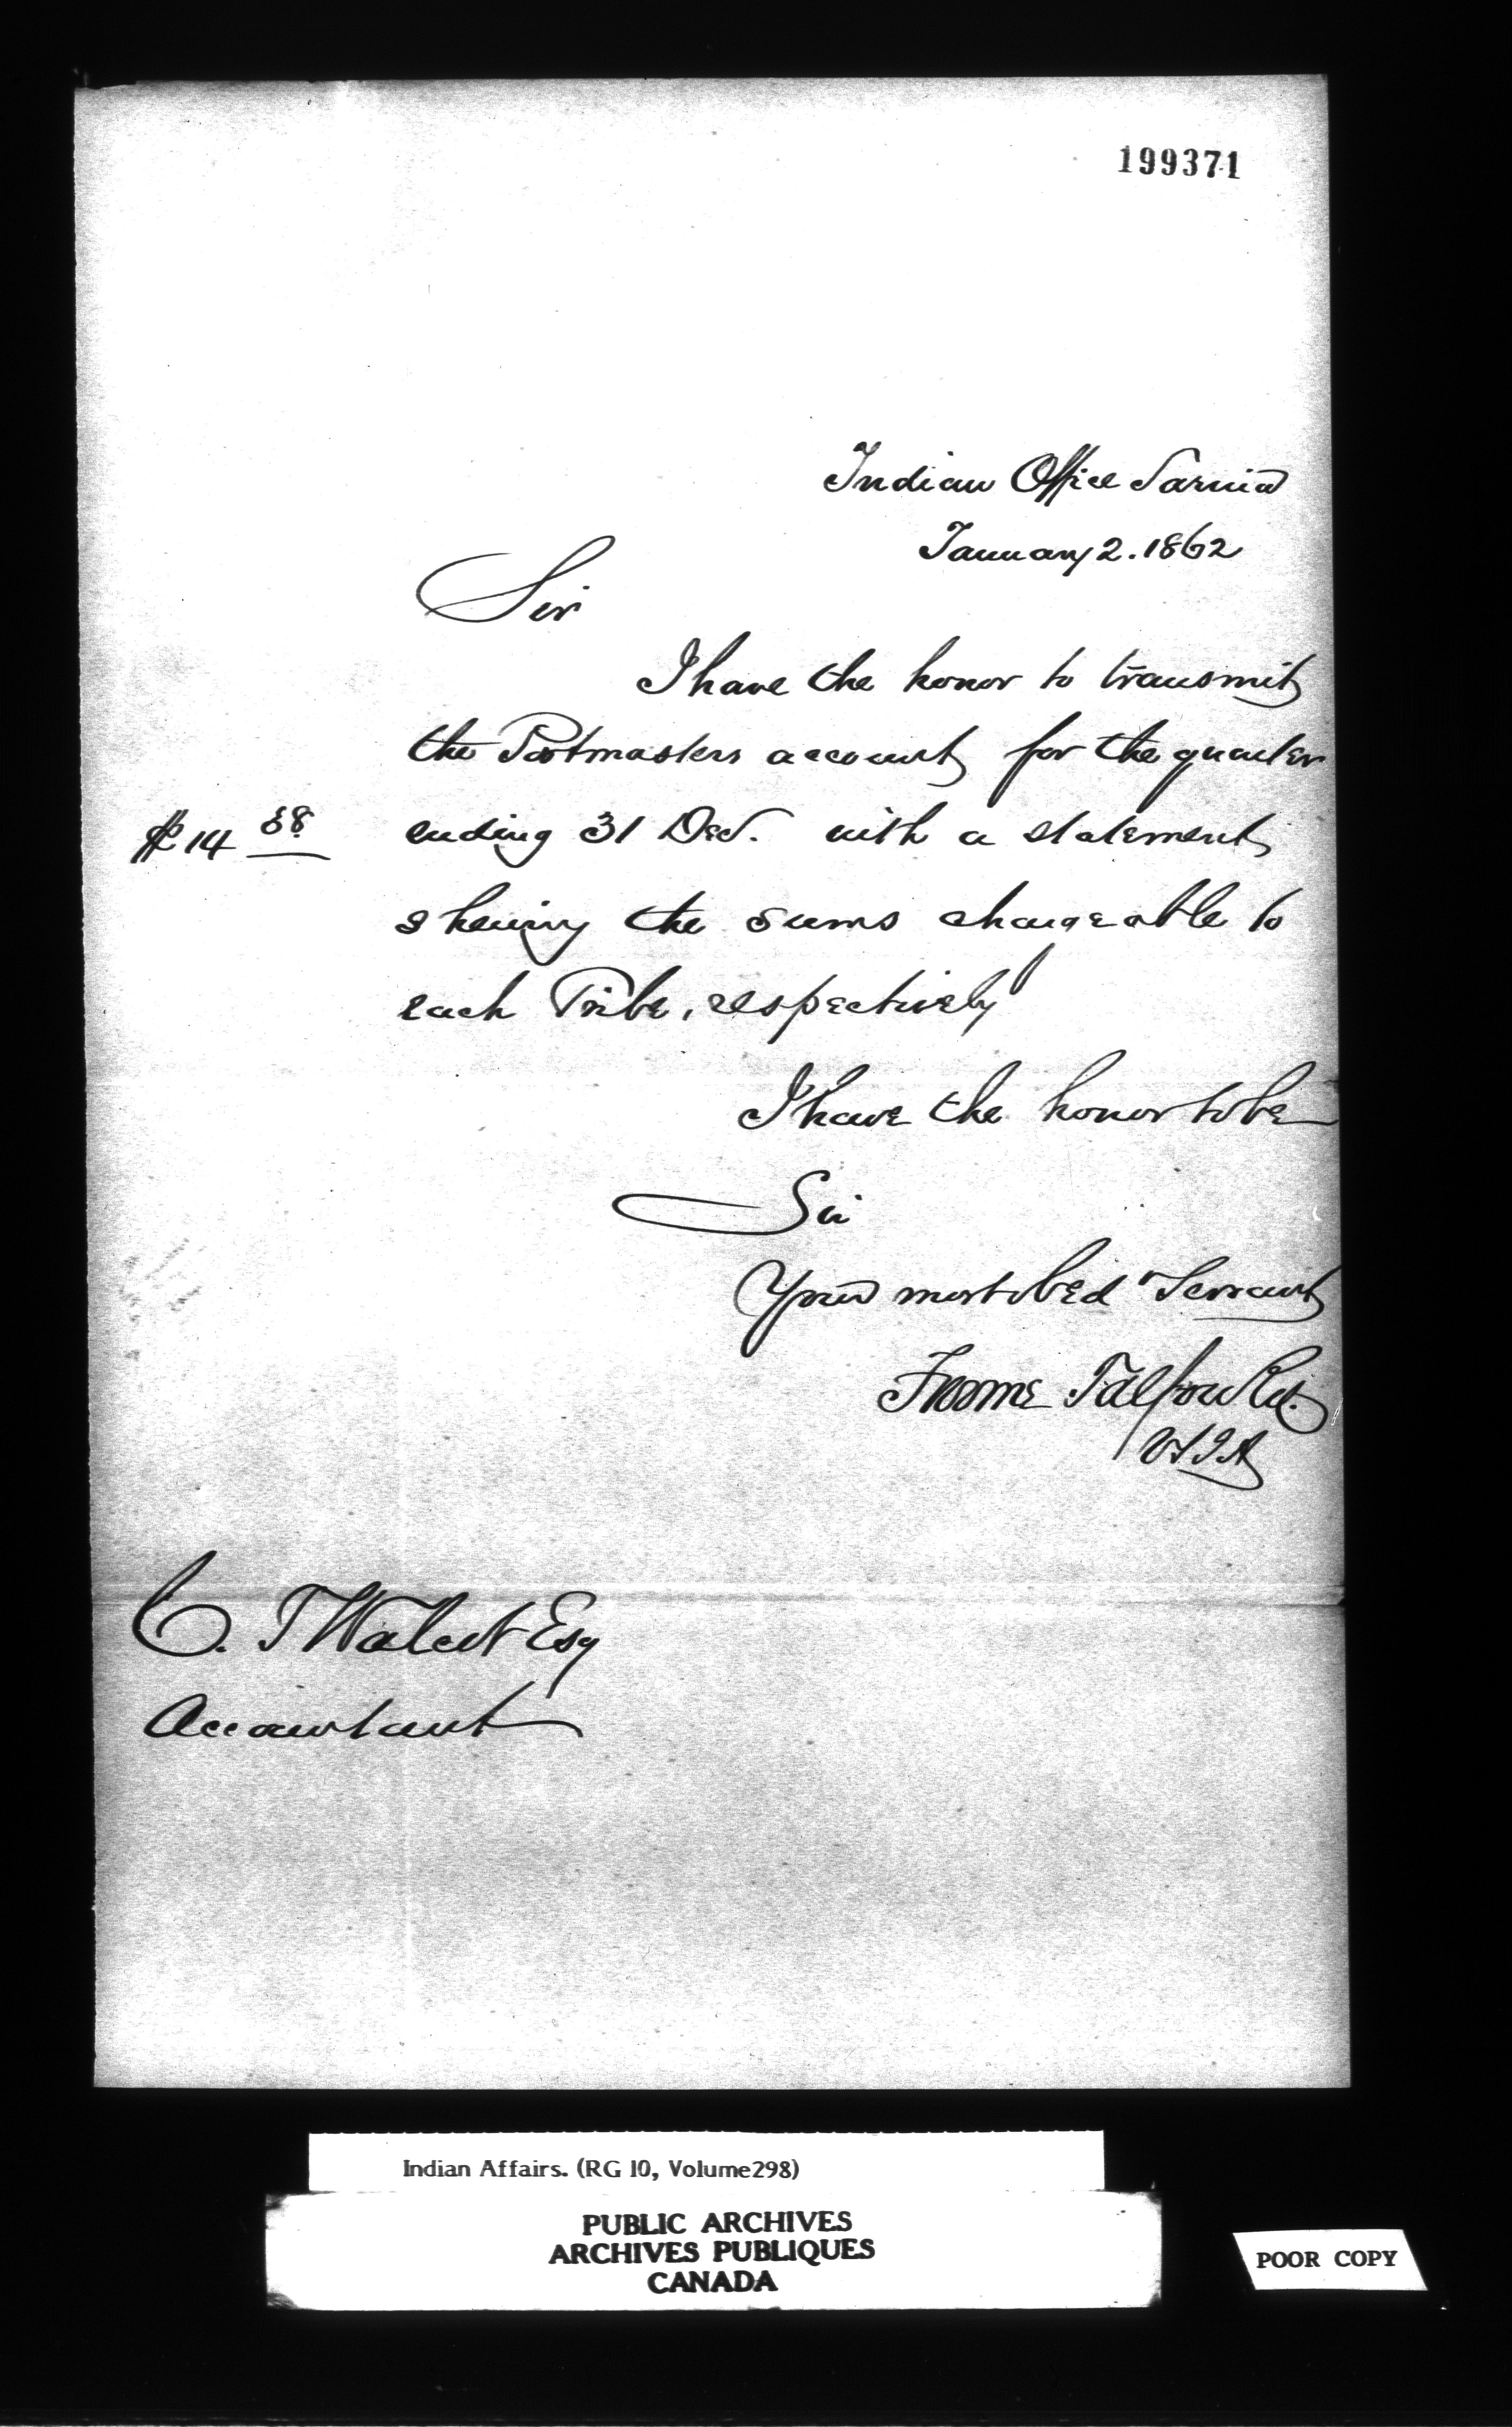 199371
Indian Office Sarnia
January 2. 1862
Sir
I have the honor to transmit
the Postmasters account for the quarter
$14 58
ending 31 Dec. with a statement
shewing the sums chargeable to
each Tribe, respectively
I have the honor to be
Sir
Your most obed Servant
Froome Talfourd.
VSIA
C. T Walcot Esq
Accountant
Indian Affairs. (RG 10, Volume298)
PUBLIC ARCHIVES
ARCHIVES PUBLIQUES
CANADA
POOR COPY